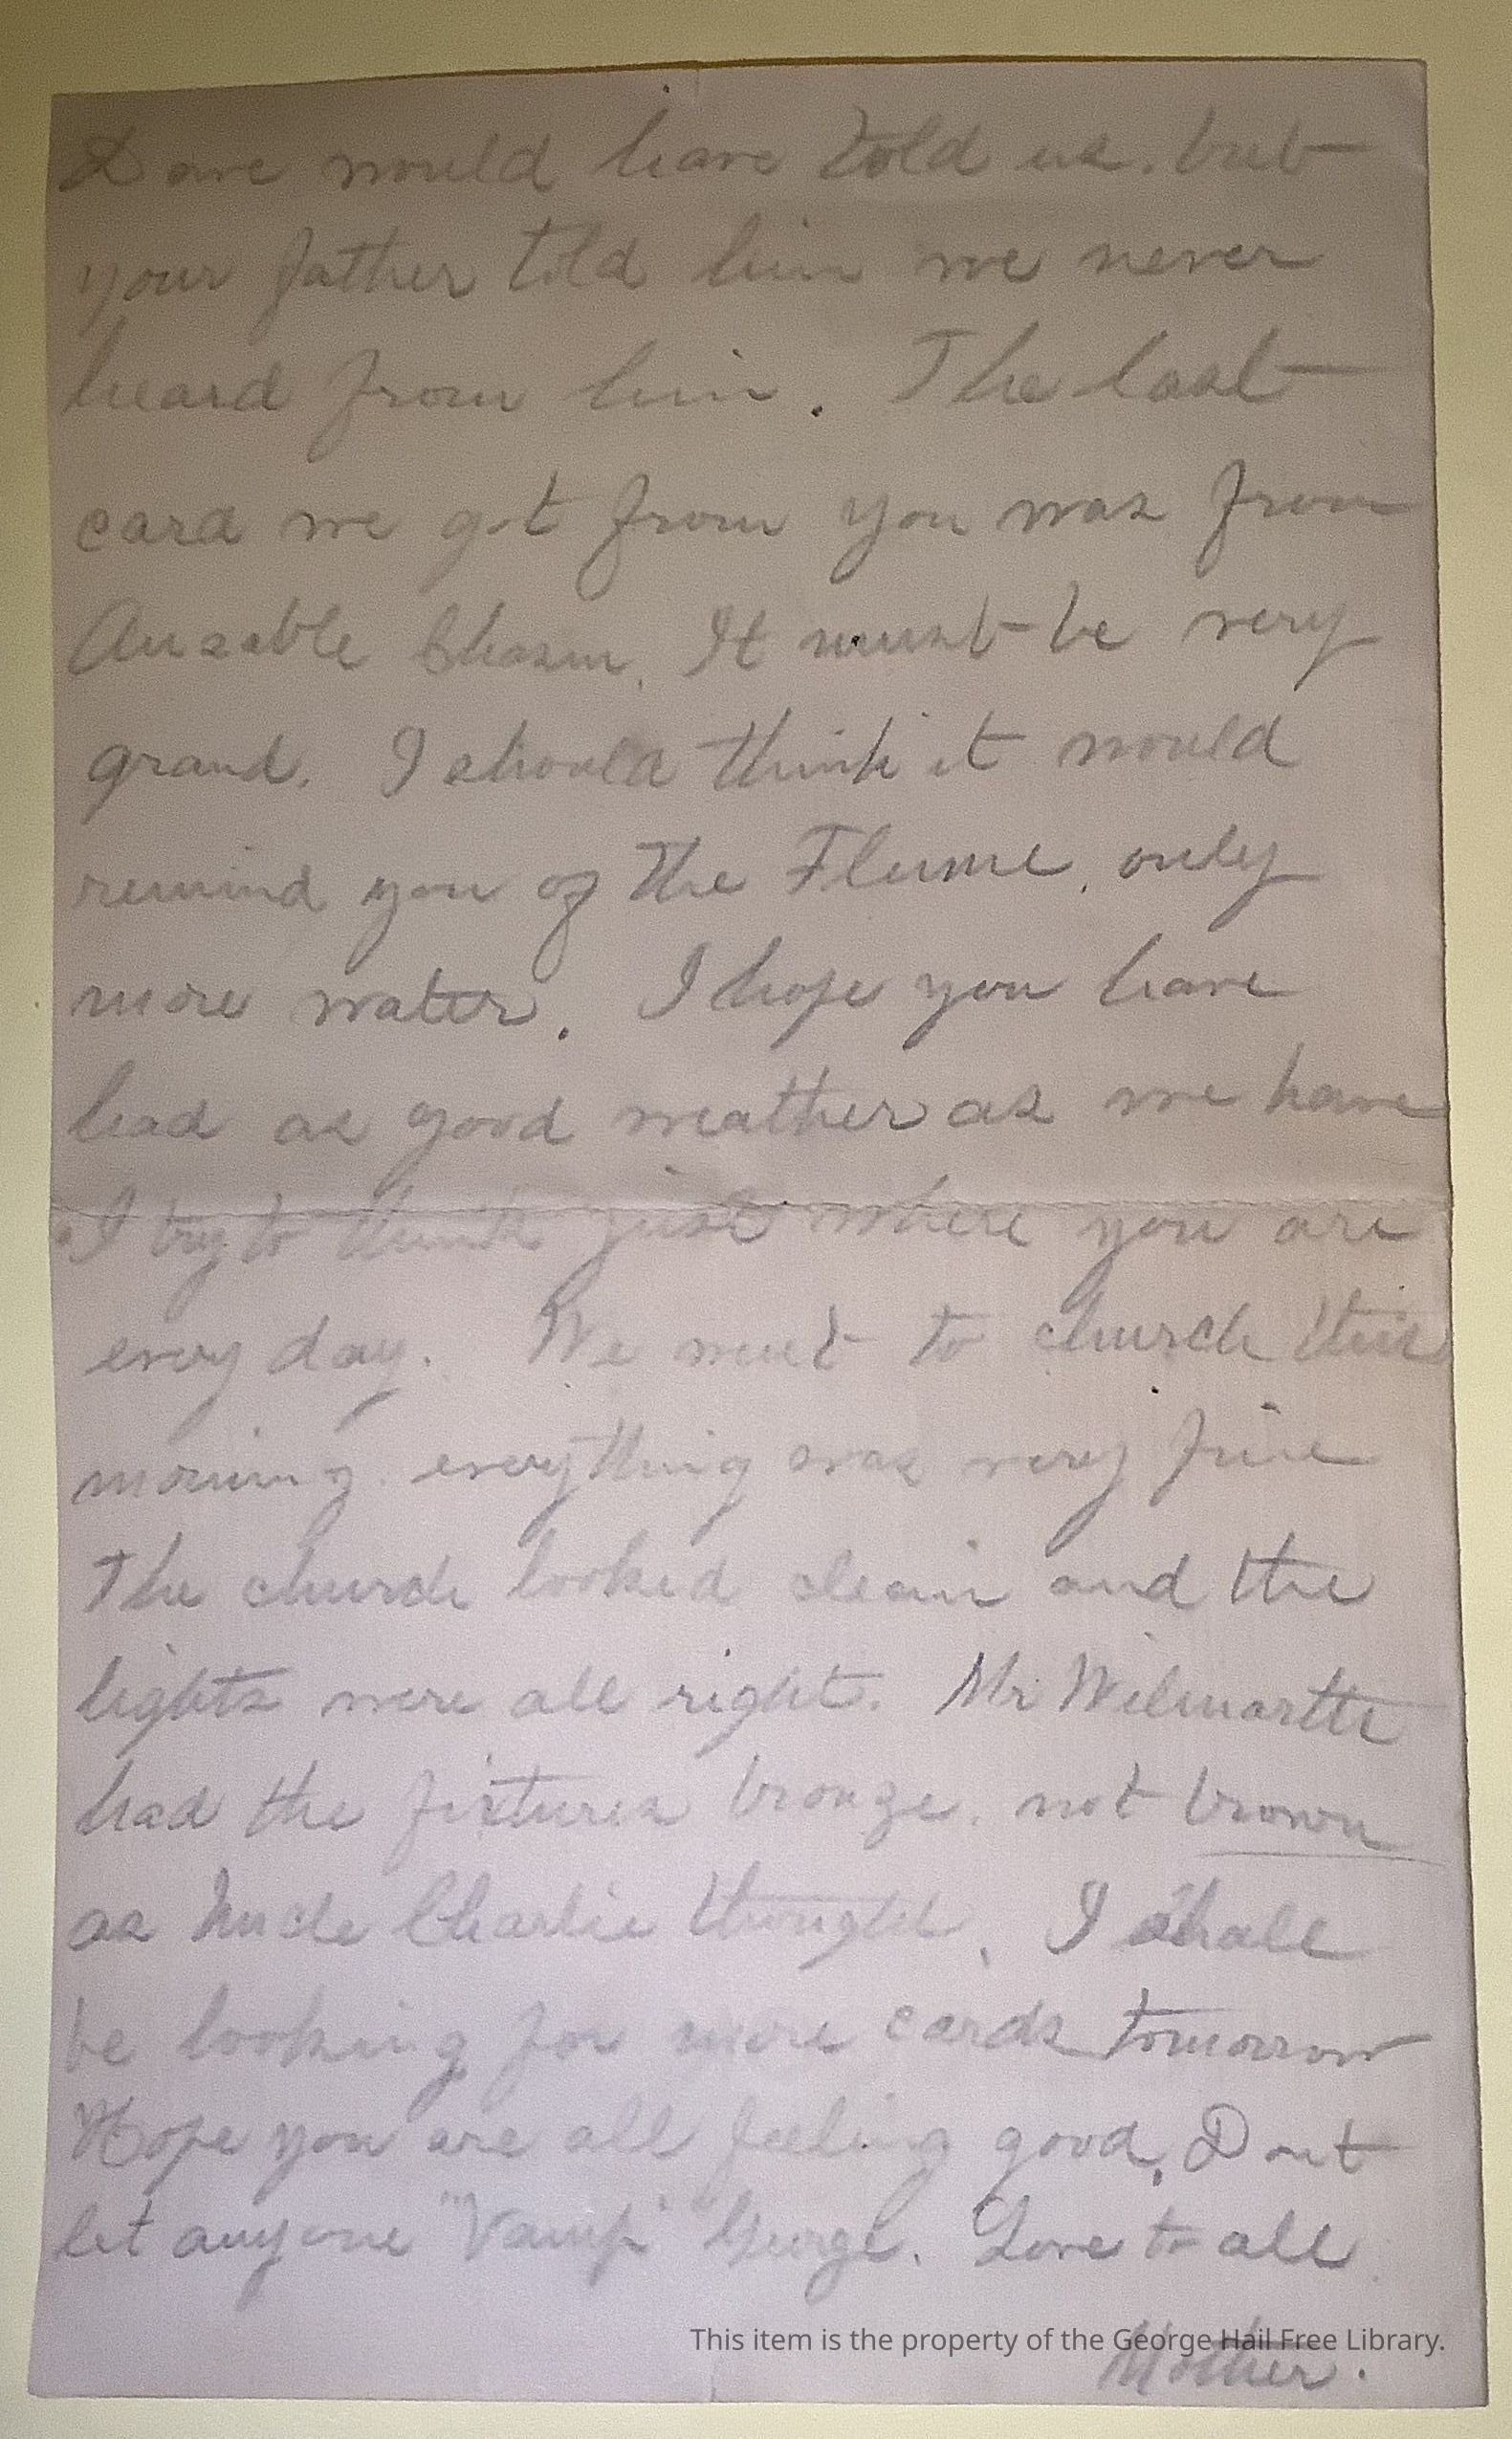 Dave would have told us, but
your father told him we never
heard from him. The last
card we got from you was from
Ausable Chasm. It must be very
grand. I should think it would
remind you of the Flume, only
more water. I hope you have
had as good weather as we have
I try to think just where you are
every day. We went to church this
morning. everything was very fine
The church looked clean and the
lights were all right. Mr Wilmarth
had the fixtures bronze, not brown
as Uncle Charlie thought. I shall
be looking for more cards tomorrow
Hope you are all feeling good. Dont
let anyone "Vamp" George. Love to all
Mother.
This item is the property of the George Hail Free Library.